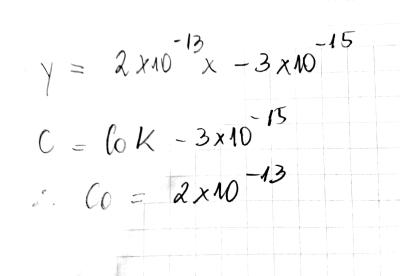 y = 2×10⁻¹³x − 3×10⁻¹⁵
C = C₀K − 3×10⁻¹⁵
∴ C₀ = 2×10⁻¹³